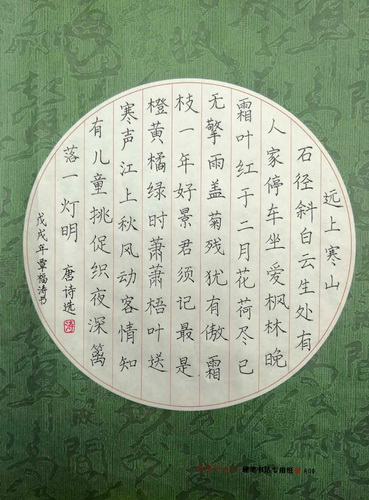 远上寒山
石径斜白云生处有
人家停车坐爱枫林晚
霜叶红于二月花荷尽已
无擎雨盖菊残犹有傲霜
枝一年好景君须记最是
橙黄橘绿时萧萧梧叶送
寒声江上秋风动客情知
有儿童挑促织夜深篱
落一灯明 唐诗选
戊戌年覃福涛书
硬笔书法专用纸